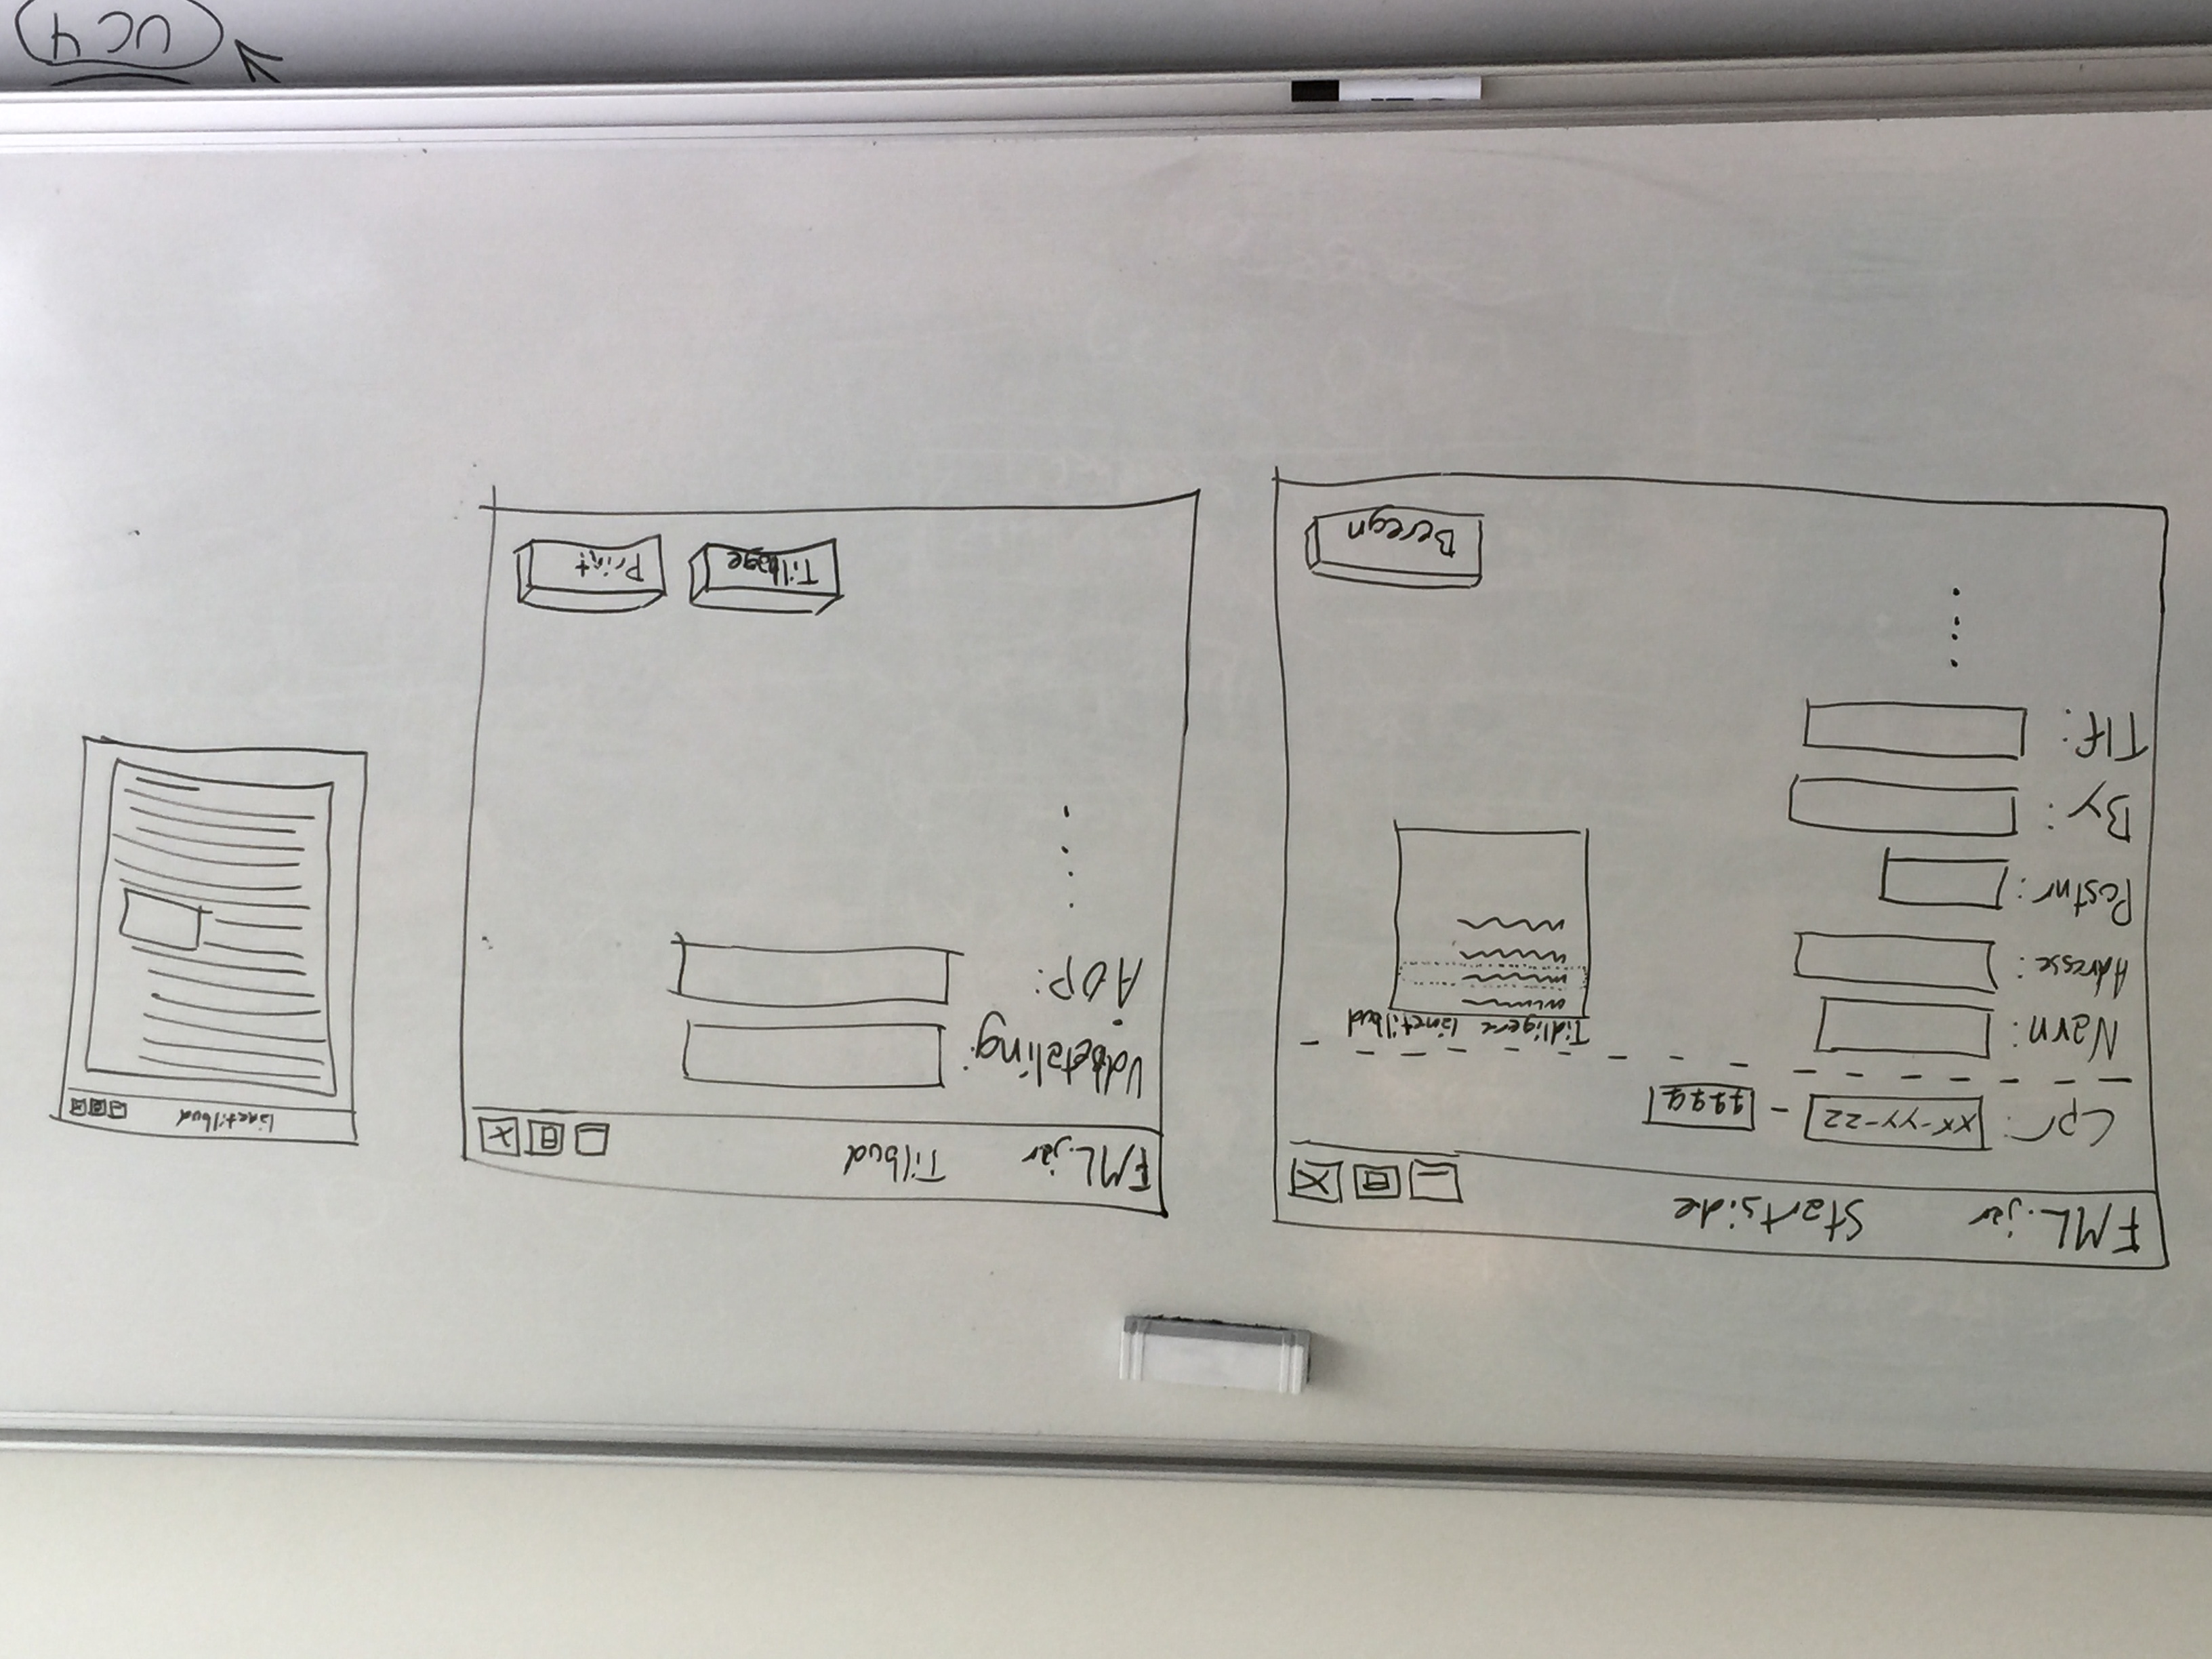 FML.jar Startside
Cpr: xx-yy-zz - qqqq
Navn:
Adresse:
Postnr:
By:
Tlf:
Tidligere lånetilbud
Beregn
FML.jar Tilbud
Udbetaling:
ÅOP:
Tilbage
Print
lånetilbud
UC 4